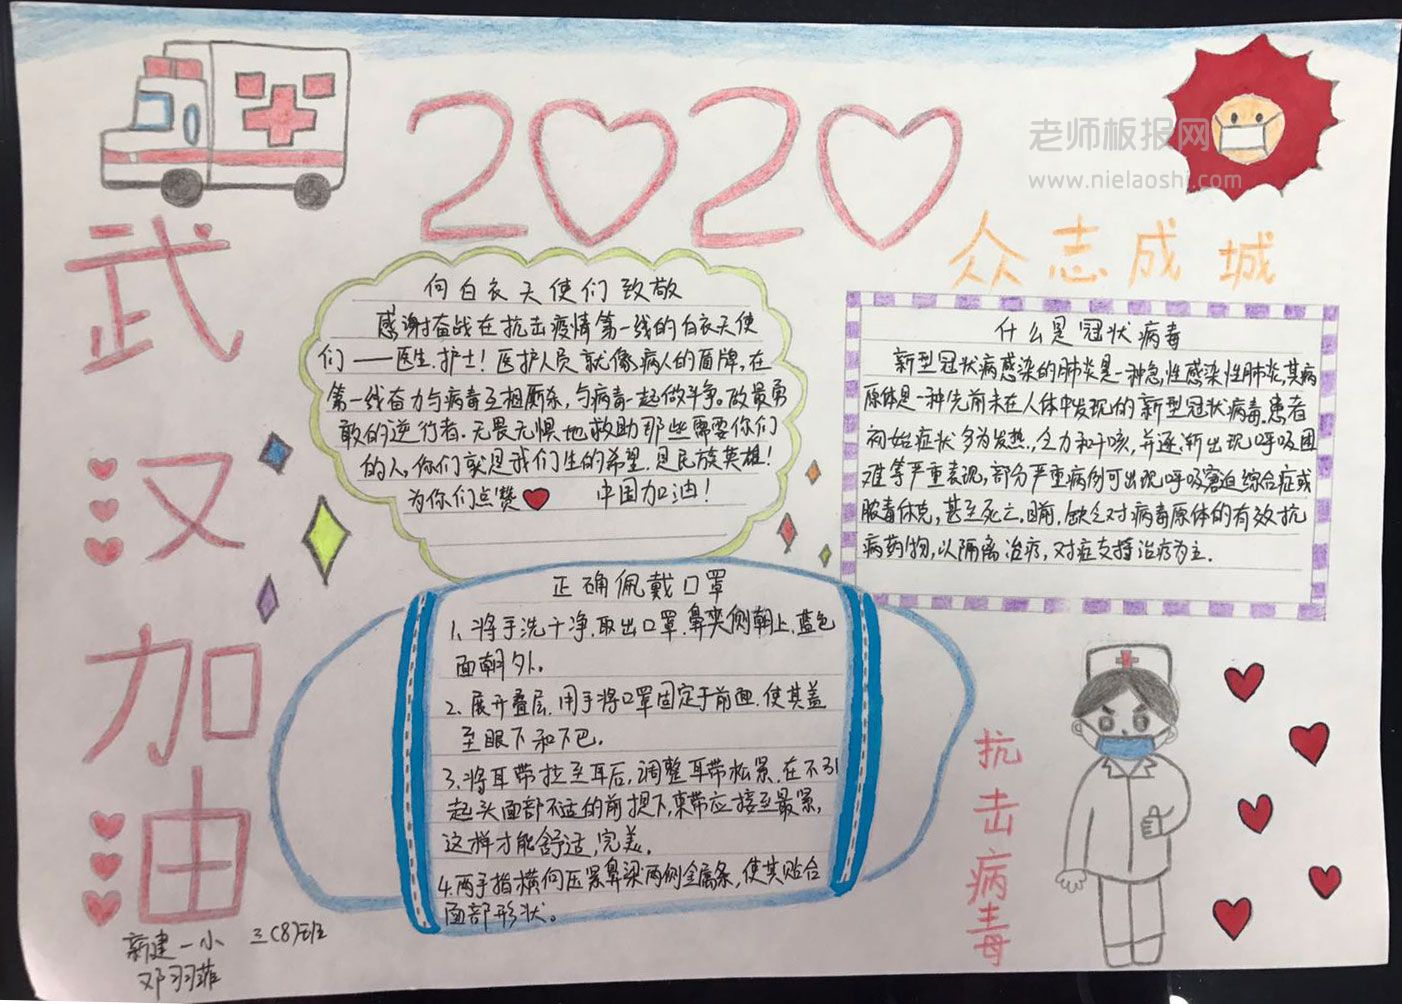 2020
老师板报网
www.nielaoshi.com
众志成城
武汉加油
向白衣天使们致敬
感谢奋战在抗击疫情第一线的白衣天使
们——医生.护士!医护人员就像病人的盾牌,在
第一线奋力与病毒互相厮杀,与病毒一起做斗争。做最勇
敢的逆行者.无畏无惧地救助那些需要你们
的人。你们就是我们生的希望.是民族英雄!
为你们点赞 中国加油!
什么是冠状病毒
新型冠状病感染的肺炎是一种急性感染性肺炎,其病
原体是一种先前未在人体中发现的新型冠状病毒.患者
初始症状多为发热.,乏力和干咳,并逐渐出现呼吸困
难等严重表现,部分严重病例可出现呼吸窘迫综合症或
脓毒休克,甚至死亡.目前,缺乏对病毒原体的有效抗
病药物,以隔离治疗,对症支持治疗为主.
正确佩戴口罩
1、将手洗干净.取出口罩.鼻夹侧朝上.蓝色
面朝外。
2、展开叠层.用手将口罩固定于前面.使其盖
至眼下和下巴.
3、将耳带拉至耳后,调整耳带松紧.在不引
起头面部不适的前提下,束带应接至最紧,
这样才能舒适,完美。
4.两手指横向压紧鼻梁两侧金属条,使其贴合
面部形状。
抗击病毒
新建一小 三(8)班
邓羽菲